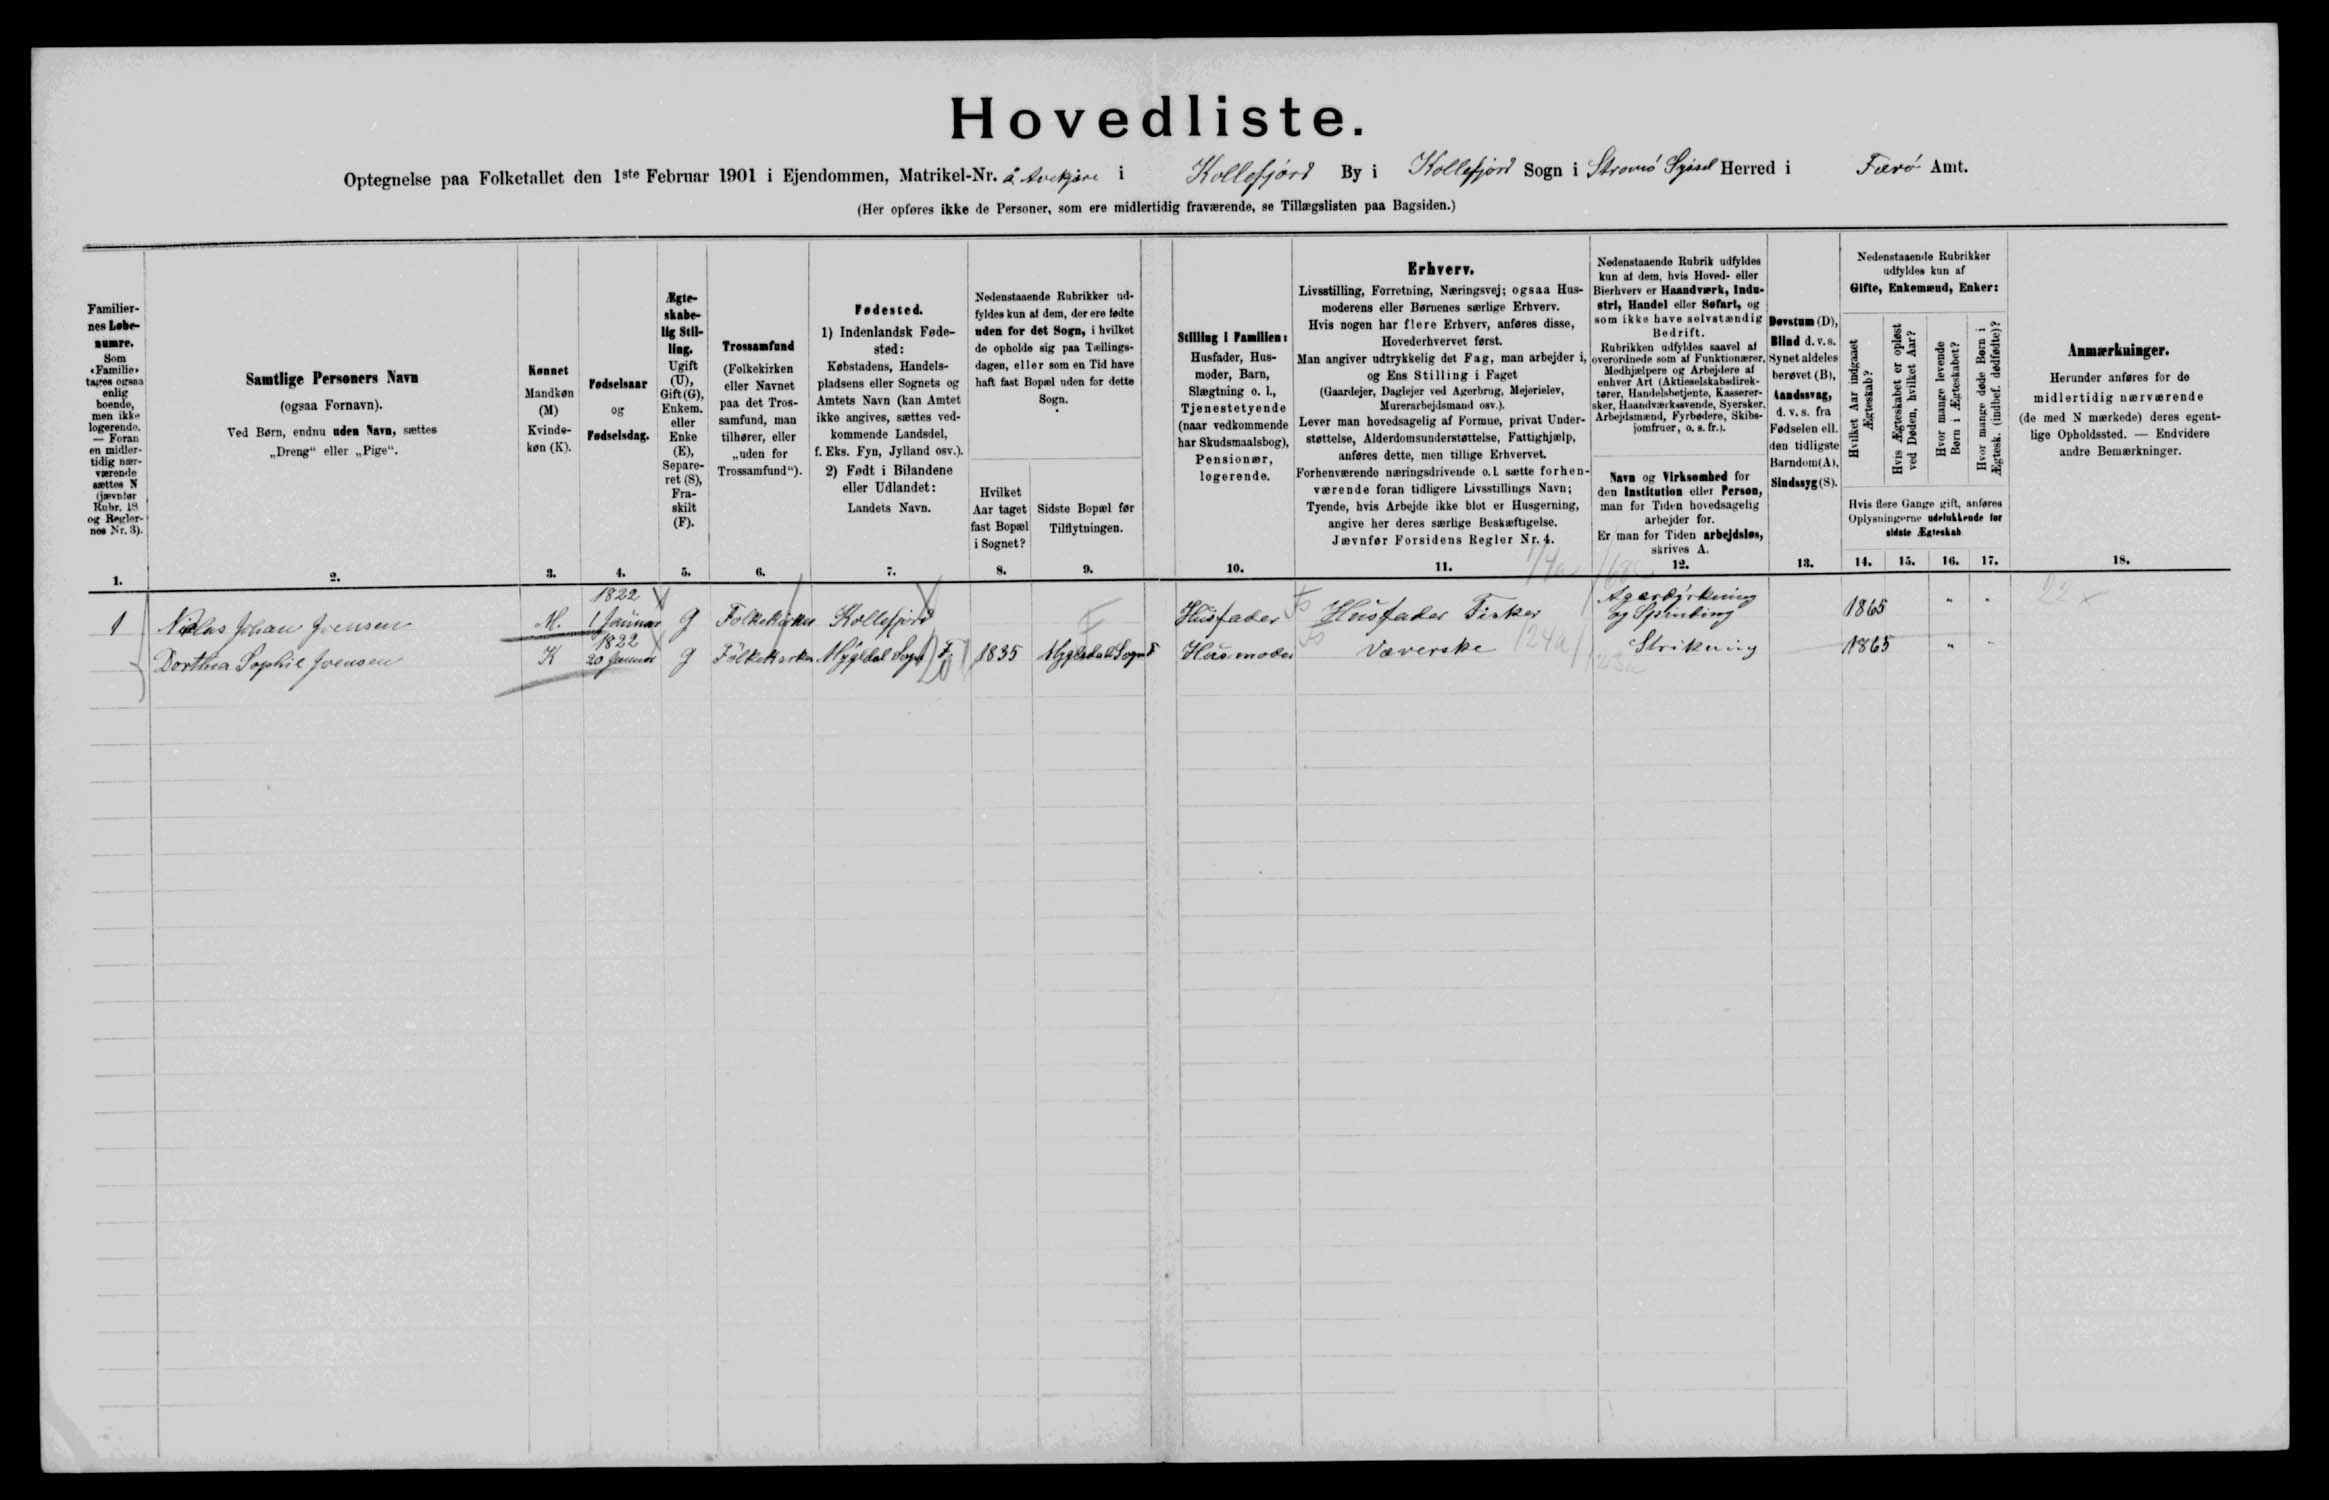 Hovedliste.
Optegnelse paa Folketallet den 1ste Februar 1901 i Ejendommen, Matrikel-Nr. i Kollefjord By i Kollefjord Sogn i Stromø Syssel Herred i Færø Amt.
(Her opføres ikke de Personer, som ere midlertidig fraværende, se Tillægslisten paa Bagsiden.)
Familier-
nes Løbe-
numre.
Som
«Familie»
tages ogsaa
enlig
boende,
men ikke
logerende.
— Foran
en midler-
tidig nær-
værende
sættes N
(jævnfør
Rubr. 18
og Regler-
nes Nr. 3).
1.
Samtlige Personers Navn
(ogsaa Fornavn).
Ved Børn, endnu uden Navn, sættes
„Dreng“ eller „Pige“.
2.
Kønnet
Mandkøn
(M)
Kvinde-
køn (K).
3.
Fødselsaar
og
Fødselsdag.
4.
Ægte-
skabe-
lig Stil-
ling.
Ugift
(U),
Gift (G),
Enkem.
eller
Enke
(E),
Separe-
ret (S),
Fra-
skilt
(F).
5.
Trossamfund
(Folkekirken
eller Navnet
paa det Tros-
samfund, man
tilhører, eller
„uden for
Trossamfund“).
6.
Fødested.
1) Indenlandsk Føde-
sted:
Købstadens, Handels-
pladsens eller Sognets og
Amtets Navn (kan Amtet
ikke angives, sættes ved-
kommende Landsdel,
f. Eks. Fyn, Jylland osv.).
2) Født i Bilandene
eller Udlandet:
Landets Navn.
7.
Nedenstaaende Rubrikker ud-
fyldes kun af dem, der ere fødte
uden for det Sogn, i hvilket
de opholde sig paa Tællings-
dagen, eller som en Tid have
haft fast Bopæl uden for dette
Sogn.
Hvilket
Aar taget
fast Bopæl
i Sognet?
8.
Sidste Bopæl før
Tilflytningen.
9.
Stilling i Familien:
Husfader, Hus-
moder, Barn,
Slægtning o. l.,
Tjenestetyende
(naar vedkommende
har Skudsmaalsbog),
Pensionær,
logerende.
10.
Erhverv.
Livsstilling, Forretning, Næringsvej; ogsaa Hus-
moderens eller Børnenes særlige Erhverv.
Hvis nogen har flere Erhverv, anføres disse,
Hovederhvervet først.
Man angiver udtrykkelig det Fag, man arbejder i,
og Ens Stilling i Faget
(Gaardejer, Daglejer ved Agerbrug, Mejerielev,
Murerarbejdsmand osv.).
Lever man hovedsagelig af Formue, privat Under-
støttelse, Alderdomsunderstøttelse, Fattighjælp,
anføres dette, men tillige Erhvervet.
Forhenværende næringsdrivende o. l. sætte forhen-
værende foran tidligere Livsstillings Navn;
Tyende, hvis Arbejde ikke blot er Husgerning,
angive her deres særlige Beskæftigelse.
Jævnfør Forsidens Regler Nr. 4.
11.
Nedenstaaende Rubrik udfyldes
kun af dem, hvis Hoved- eller
Bierhverv er Haandværk, Indu-
stri, Handel eller Søfart, og
som ikke have selvstændig
Bedrift.
Rubrikken udfyldes saavel af
overordnede som af Funktionærer,
Medhjælpere og Arbejdere af
enhver Art (Aktieselskabsdirek-
tører, Handelsbetjente, Kasserer-
sker, Haandværkssvende, Syersker,
Arbejdsmænd, Fyrbødere, Skibs-
jomfruer, o. s. fr.).
Navn og Virksomhed for
den Institution eller Person,
man for Tiden hovedsagelig
arbejder for.
Er man for Tiden arbejdsløs,
skrives A.
12.
Døvstum (D),
Blind d. v. s.
Synet aldeles
berøvet (B),
Aandssvag,
d. v. s. fra
Fødselen ell.
den tidligste
Barndom (A),
Sindssyg (S).
13.
Nedenstaaende Rubrikker
udfyldes kun af
Gifte, Enkemænd, Enker:
Hvilket Aar indgaaet
Ægteskab?
Hvis Ægteskabet er opløst
ved Døden, hvilket Aar?
Hvor mange levende
Børn i Ægteskabet?
Hvor mange døde Børn i
Ægtesk. (indbef. dødfødte)?
Hvis flere Gange gift, anføres
Oplysningerne udelukkende for
sidste Ægteskab
14. 15. 16. 17.
Anmærkninger.
Herunder anføres for de
midlertidig nærværende
(de med N mærkede) deres egent-
lige Opholdssted. — Endvidere
andre Bemærkninger.
18.
1 Niclas Johan Joensen M. 1822 1 Januar G Folkekirken Kollefjord Husfader Husfader Fisker Agerdyrkning og Spinding 1865 " "
Dorthea Sophie Joensen K 1822 20 Januar G Folkekirken Mygledal Sogn F. 1835 Mygledal Sogn F Husmoder Væverske 124a Strikning 1865 "